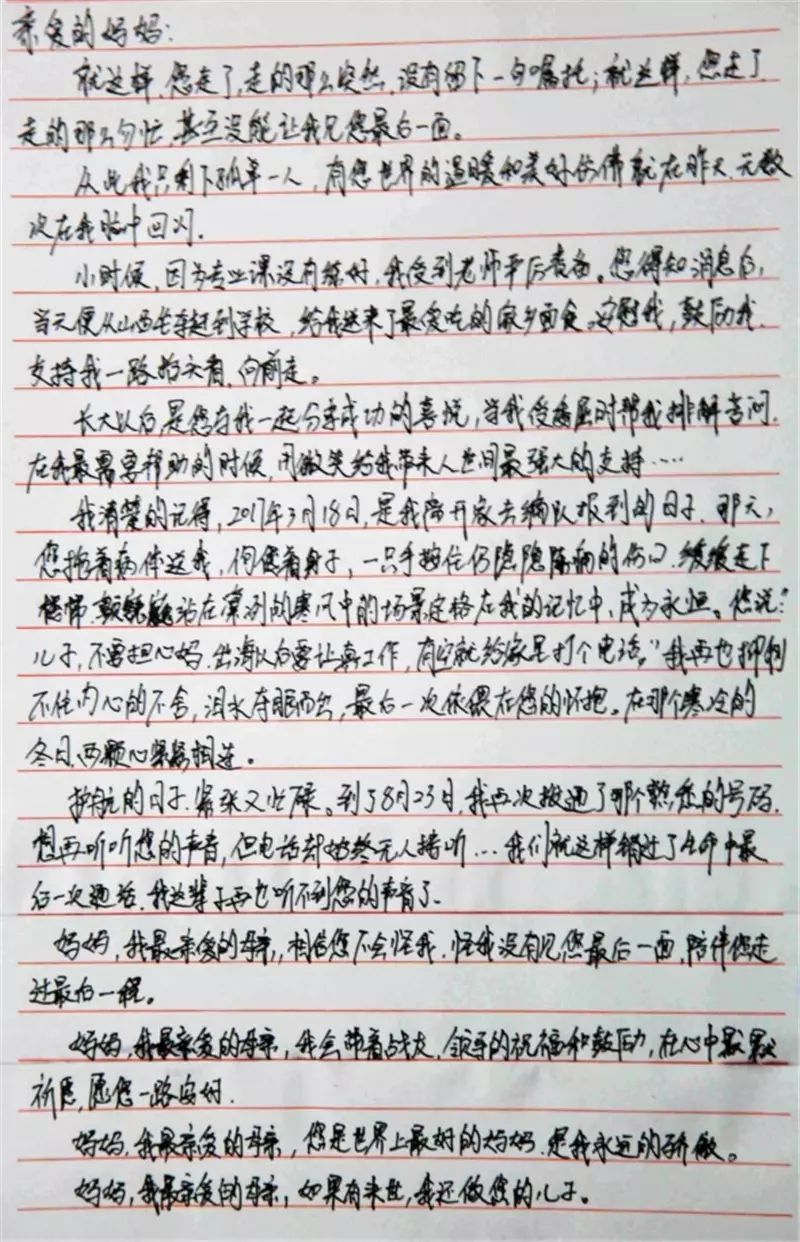 亲爱的妈妈：
就这样，您走了，走的那么突然，没有留下一句嘱托；就这样，您走了
走的那么匆忙，甚至没能让我见您最后一面。
从此我只剩下孤单一人，有您世界的温暖和美好仿佛就在昨天，无数
次在我脑中回闪.
小时候，因为专业课没有练好，我受到老师严厉责备。您得知消息后，
当天便从山西老家赶到学校，给我送来了最爱吃的家乡面食。安慰我，鼓励我，
支持我一路抬头看，向前走。
长大以后，是您与我一起分享成功的喜悦，当我受委屈时帮我排解苦闷，
在我最需要帮助的时候，用微笑给我带来人世间最强大的支持……
我清楚的记得，2017年3月18日，是我离开家去编队报到的日子，那天，
您拖着病体送我，佝偻着身子，一只手按住仍隐隐隔痛的伤口，缓缓走下
楼梯，颤巍巍站在凛冽的寒风中的场景定格在我的记忆中，成为永恒。您说："
儿子，不要担心妈，出海以后要认真工作，有空就给家里打个电话。"我再也抑制
不住内心的不舍，泪水夺眶而出，最后一次依偎在您的怀抱。在那个寒冷的
冬日，两颗心紧紧相连。
护航的日子，紧张又忙碌。到了8月23日，我再次拨通了那个熟悉的号码，
想再听听您的声音，但电话却始终无人接听…我们就这样错过了生命中最
后一次通话，我这辈子再也听不到您的声音了.
妈妈，我最亲爱的母亲，相信您不会怪我，怪我没有见您最后一面，陪伴您走
过最后一程。
妈妈，我最亲爱的母亲，我会带着战友，领导的祝福和鼓励，在心中默默
祈愿，愿您一路安好.
妈妈，我最亲爱的母亲，您是世界上最好的妈妈，是我永远的骄傲。
妈妈，我最亲爱的母亲，如果有来世，我还做您的儿子。